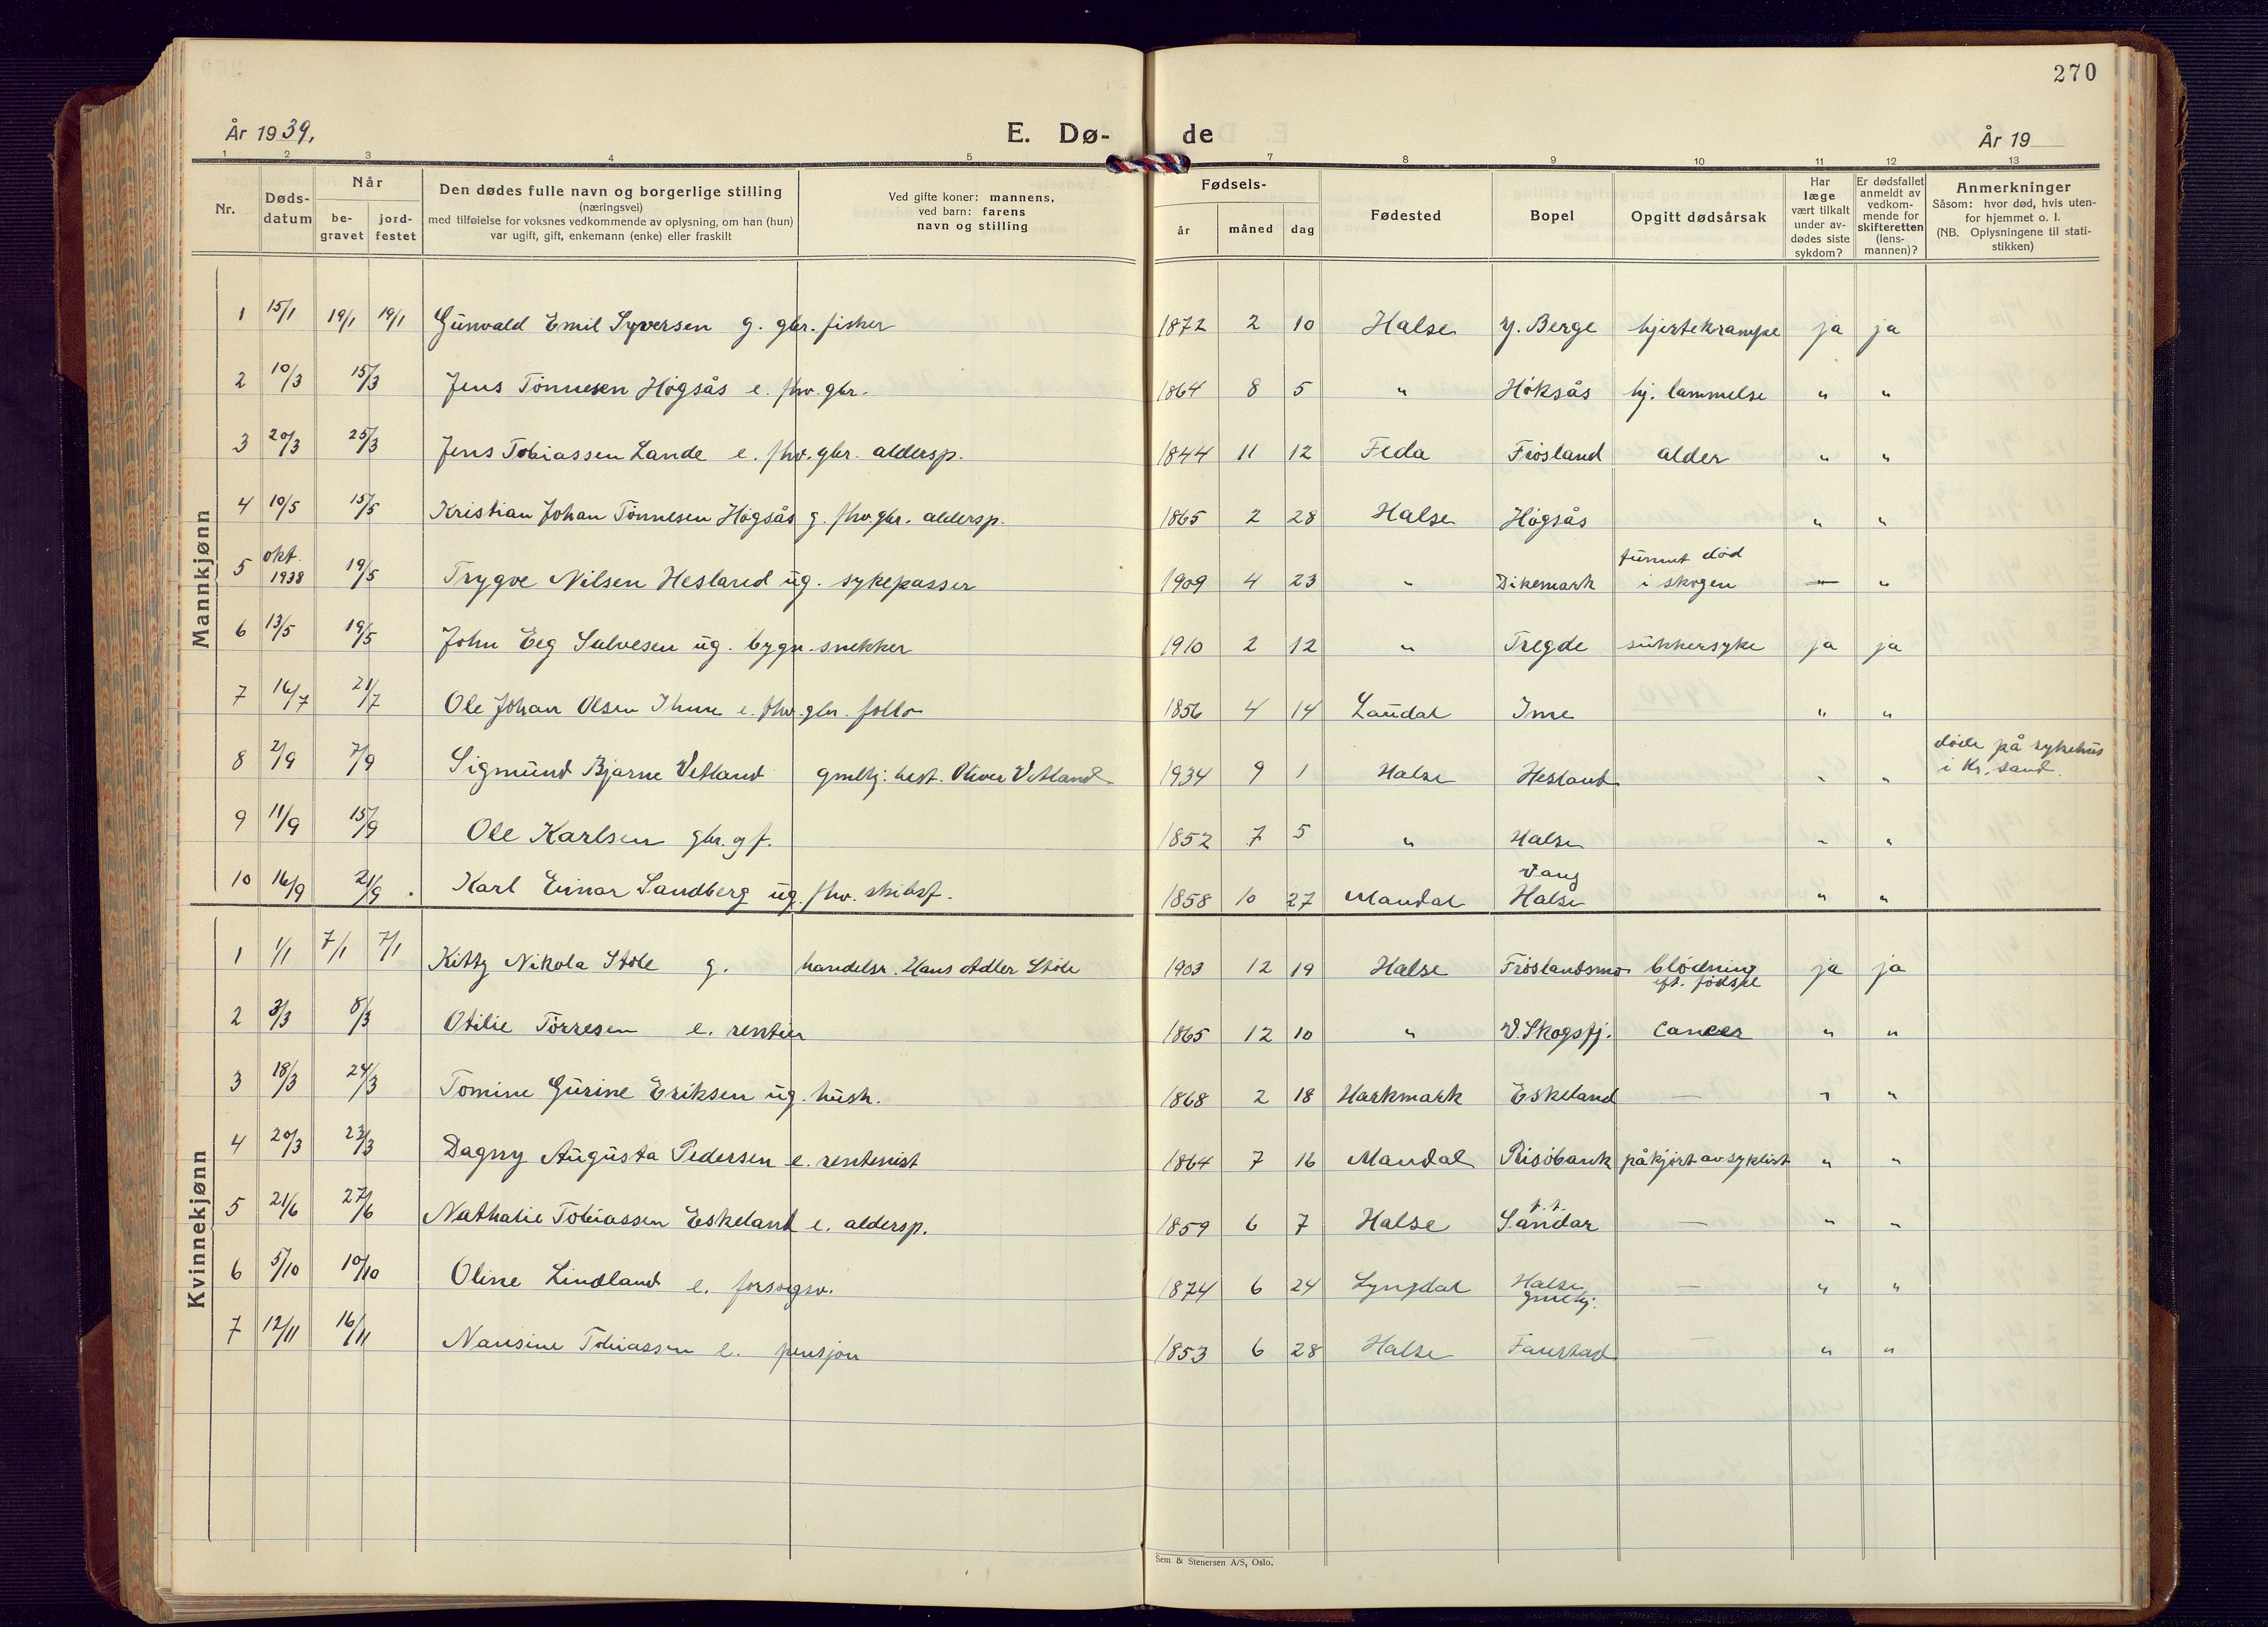 270
År 1939,
E. Dø- de
År 19
1 2 3 4 5 7 8 9 10 11 12 13
Nr.
Døds-
datum
Når
be-
gravet
jord-
festet
Den dødes fulle navn og borgerlige stilling
(næringsvei)
med tilføielse for voksnes vedkommende av oplysning, om han (hun)
var ugift, gift, enkemann (enke) eller fraskilt
Ved gifte koner: mannens,
ved barn: farens
navn og stilling
Fødsels-
år måned dag
Fødested
Bopel
Opgitt dødsårsak
Har
læge
vært tilkalt
under av-
dødes siste
sykdom?
Er dødsfallet
anmeldt av
vedkom-
mende for
skifteretten
(lens-
mannen)?
Anmerkninger
Såsom: hvor død, hvis uten-
for hjemmet o. l.
(NB. Oplysningene til stati-
stikken)
Mannkjønn
1 15/1 19/1 19/1 Gunvald Emil Syversen g. gbr. fisker 1872 2 10 Halse y. Berge hjertekrampe ja ja
2 10/3 15/3 Jens Tønnesen Høgsås e. fhv. gbr. 1864 8 5 " Høksås hj. lammelse " "
3 20/3 25/3 Jens Tobiassen Lande e. fhv. gbr. aldersp. 1844 11 12 Feda Frøsland alder " "
4 10/5 15/5 Kristian Johan Tønnesen Høgsås g. fhv gbr. aldersp. 1865 2 28 Halse Høgsås " "
5 okt. 1938 19/5 Trygve Nilsen Hesland ug. sykepasser 1909 4 23 " Dikemark funnet død i skogen — "
6 13/5 19/5 John Eeg Salvesen ug. bygn. snekker 1910 2 12 " Tregde sukkersyke ja ja
7 16/7 21/7 Ole Johan Olsen Ihme e. fhv. gbr. 1856 4 14 Laudal Ime " "
8 2/9 7/9 Sigmund Bjarne Vetland gmlhj. best. Oliver Vetland 1934 9 1 Halse Hesland " " døde på sykehus
i Kr. sand.
9 11/9 15/9 Ole Karlsen gbr. g f. 1852 7 5 " Halse " "
10 16/9 21/9 Karl Einar Sandberg ug. fhv. skibsf. 1858 10 27 Mandal Vang Halse " "
Kvinnekjønn
1 1/1 7/1 7/1 Kitty Nikola Støle g. handelsr. Hans Adler Støle 1903 12 19 Halse Frøslandsmo blødning
eft. fødsle ja ja
2 3/3 8/3 Otilie Tørresen e. rentier 1865 12 10 " V. Skogsfj. Cancer " "
3 18/3 24/3 Tomine Gurine Eriksen ug. hush. 1868 2 18 Harkmark Eskeland — " "
4 20/3 23/3 Dagny Augusta Pedersen e. rentenist 1864 7 16 Mandal Risøbank påkjørt av syklist " "
5 21/6 27/6 Nathalie Tobiassen Eskeland e. aldersp. 1859 6 7 Halse t. t. Sandar — " "
6 5/10 10/10 Oline Lindland e. forsorgsv. 1874 6 24 Lyngdal Halse
gmlhj. — " "
7 12/11 16/11 Nansine Tobiassen e. pensjon 1853 6 28 Halse Farestad — " "
Sem & Stenersen A/S, Oslo.